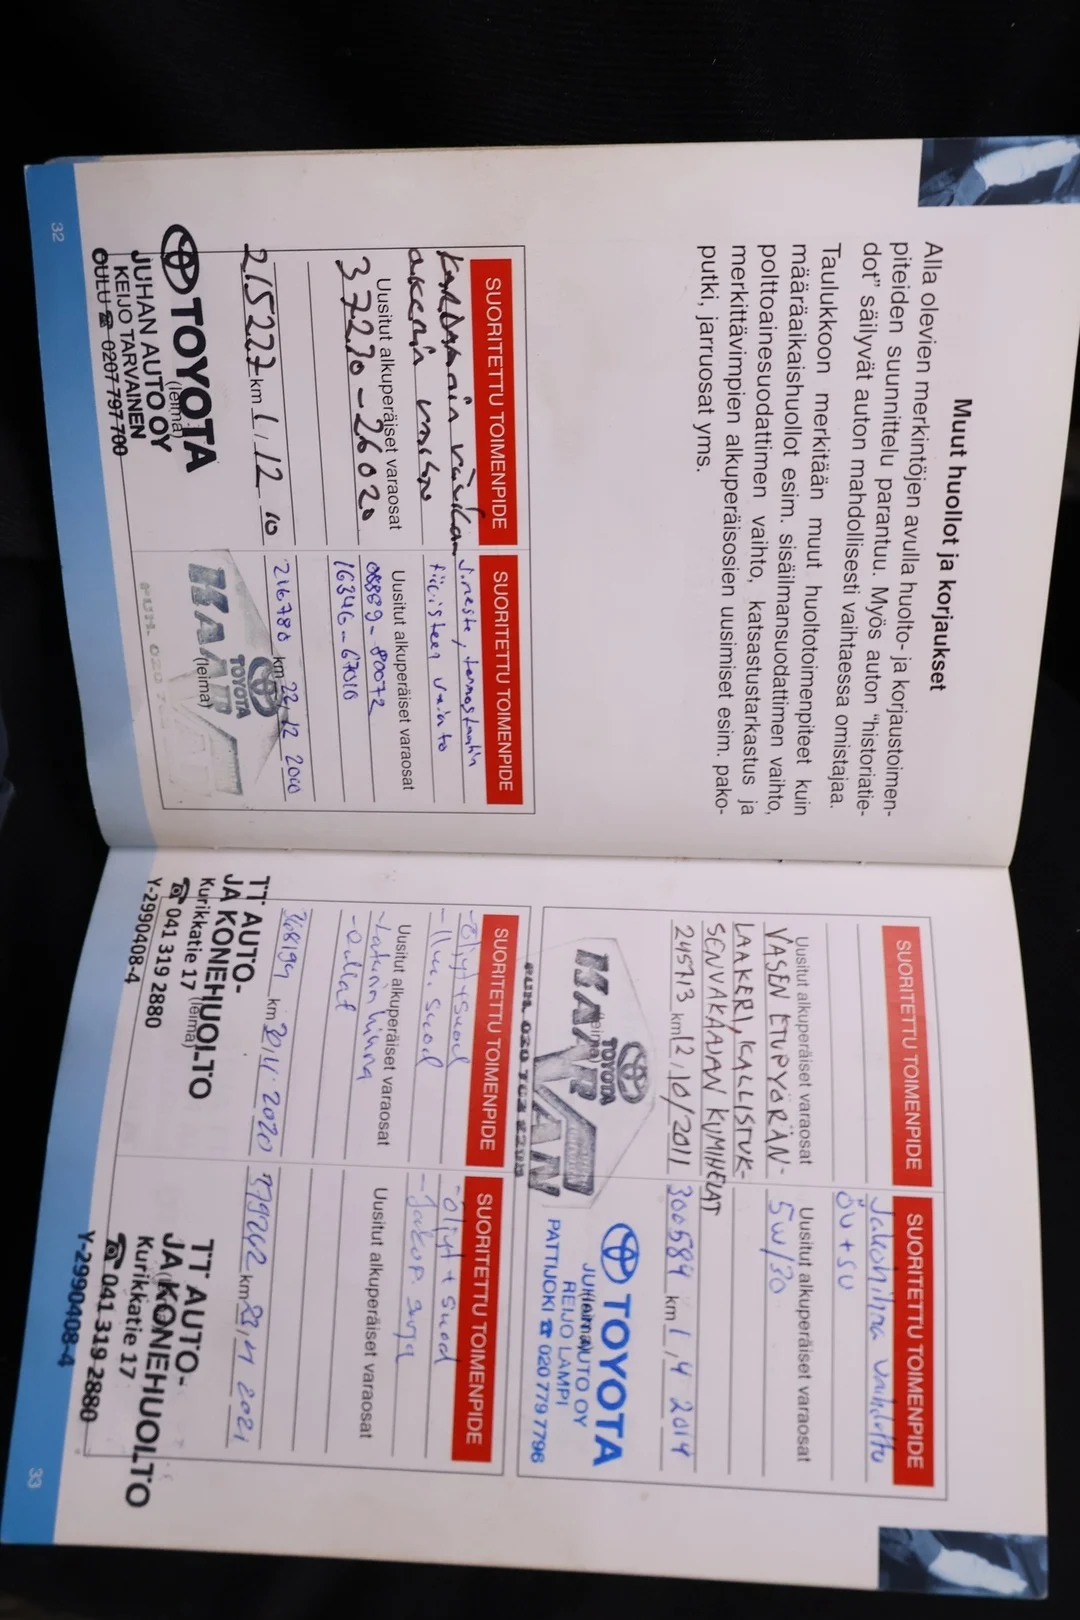 Muut huollot ja korjaukset
Alla olevien merkintöjen avulla huolto- ja korjaustoimen-
piteiden suunnittelu parantuu. Myös auton "historiatie-
dot" säilyvät auton mahdollisesti vaihtaessa omistajaa.
Taulukkoon merkitään muut huoltotoimenpiteet kuin
määräaikaishuollot esim. sisäilmansuodattimen vaihto,
polttoainesuodattimen vaihto, katsastustarkastus ja
merkittävimpien alkuperäisosien uusimiset esim. pako-
putki, jarruosat yms.
SUORITETTU TOIMENPIDE
Uusitut alkuperäiset varaosat
37230-26020
215227 km 1.12 10
TOYOTA
(leima)
JUHAN AUTO OY
KEIJO TARVAINEN
OULU ☎ 0207 797 700
SUORITETTU TOIMENPIDE
Jineste, termostaatin
tiivisteen vaihto
Uusitut alkuperäiset varaosat
08889-80072
16346-67010
216780 km 22.12
TOYOTA
(leima)
32
SUORITETTU TOIMENPIDE
Uusitut alkuperäiset varaosat
VASEN ETUPYÖRÄN-
LAAKERI, KALLISTUK-
SENVAKAAJAN KUMIHELAT
245713 km 12.10/2011
TOYOTA
(leima)
SUORITETTU TOIMENPIDE
Jakohihna vaihdettu
ÖV + SU
Uusitut alkuperäiset varaosat
5W/30
300584 km 1.4 2014
TOYOTA
JUHAN AUTO OY
REIJO LAMPI
PATTIJOKI ☎ 020 779 7796
SUORITETTU TOIMENPIDE
-Öljyt+suod
-Ilm. suod
Uusitut alkuperäiset varaosat
-Laturin hihna
-Rullat
368194 km 30.11.2020
TT AUTO-
JA KONEHUOLTO
Kurikkatie 17 (leima)
☎ 041 319 2880
Y-2990408-4
SUORITETTU TOIMENPIDE
-öljyt + suod
-Jakop. sarja
Uusitut alkuperäiset varaosat
379242 km 23.11 2021
TT AUTO-
JA KONEHUOLTO
Kurikkatie 17
☎ 041 319 2880
Y-2990408-4
33